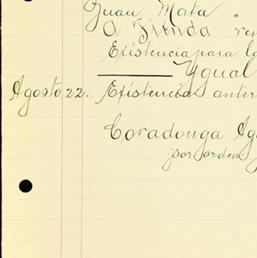 Juan Mata "
A Tienda ren
Existencia para la
Ygual
Agosto 22. Existencias anter
Coradonga Ag
por orden